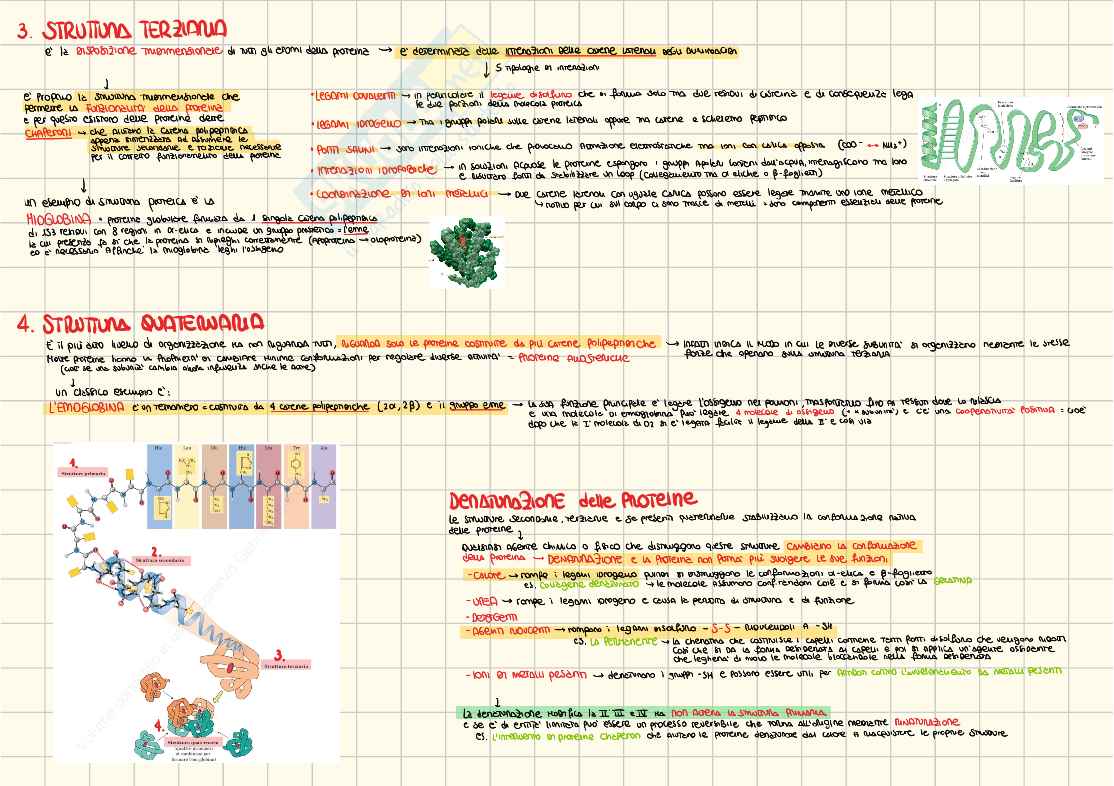 3. STRUTTURA TERZIARIA
e' la DISPOSIZIONE TRIDIMENSIONALE di tutti gli atomi della proteina → e' determinata dalle INTERAZIONI DELLE CATENE LATERALI DEGLI AMMINOACIDI
↓ 5 tipologie di interazioni
e' proprio la struttura tridimensionale che
permette la FUNZIONALITÀ della proteina
e per questo esistono delle proteine dette
CHAPERONI → che aiutano la catena polipeptidica
appena sintetizzata ad assumere le
strutture secondarie e terziarie necessarie
per il corretto funzionamento della proteine
• LEGAMI COVALENTI → in particolare il legame disolfuro che si forma solo tra due residui di cisteina e di conseguenza lega
le due porzioni della molecola proteica
• LEGAMI IDROGENO → tra i gruppi polari sulle catene laterali oppure tra catene e scheletro peptidico
• PONTI SALINI → sono interazioni ioniche che provocano attrazione elettrostatiche tra ioni con carica opposta (COO⁻ ↔ NH₃⁺)
• INTERAZIONI IDROFOBICHE → in soluzioni acquose le proteine espongono i gruppi apolari lontani dall'acqua, interagiscono tra loro
e risultano forti da stabilizzare un loop (collegamento tra α eliche o β-foglietti)
• COORDINAZIONE DI IONI METALLICI → due catene laterali con uguale carica possono essere legate tramite uno ione metallico
↳ motivo per cui sul corpo ci sono tracce di metalli = sono componenti essenziali delle proteine
un esempio di struttura proteica e' la
MIOGLOBINA = proteina globulare formata da 1 singola catena polipeptidica
di 153 residui con 8 regioni in α-elica e include un gruppo prostetico = l'eme
la cui presenza fa sì che la proteina si ripieghi correttamente (apoproteina → oloproteina)
ed e' necessario affinche' la mioglobina leghi l'ossigeno
4. STRUTTURA QUATERNARIA
È il più alto livello di organizzazione ma non riguarda tutti, RIGUARDA SOLO LE PROTEINE COSTITUITE DA PIÙ CATENE POLIPEPTIDICHE → infatti indica il modo in cui le diverse subunità si organizzano mediante le stesse
forze che operano sulla struttura terziaria
Molte proteine hanno la proprietà di cambiare minime conformazioni per regolare diverse attività = PROTEINE ALLOSTERICHE
(così se una subunità cambia allora influenza anche le altre)
↓
un classico esempio e':
L'EMOGLOBINA e' un tetramero = costituita da 4 catene polipeptidiche (2α, 2β) e il gruppo eme → la sua funzione principale e' legare l'ossigeno nei polmoni, trasportarlo fino ai tessuti dove lo rilascia
e una molecola di emoglobina può legare 4 molecole di ossigeno (= 4 subunità) e c'e' una COOPERATIVITÀ POSITIVA = cioe'
dopo che la I° molecola di O₂ si e' legata facilita il legame della II° e così via
1.
Struttura primaria
His
Leu
His
Leu
Tyr
Ala
2.
Struttura secondaria
3.
Struttura terziaria
4.
Struttura quaternaria
DENATURAZIONE delle PROTEINE
Le strutture secondarie, terziarie e se presenti quaternarie stabilizzano la conformazione nativa
delle proteine
↓
Qualsiasi agente chimico o fisico che distruggono queste strutture CAMBIANO LA CONFORMAZIONE
della PROTEINA → DENATURAZIONE e la proteina non potrà più svolgere le sue funzioni
- CALORE → rompe i legami idrogeno quindi si distruggono le conformazioni α-elica e β-foglietto
es. Collagene denaturato → le molecole assumono conf. random coil e si forma così la GELATINA
- UREA → rompe i legami idrogeno e causa la perdita di struttura e di funzione
- DETERGENTI
- AGENTI RIDUCENTI → rompono i legami disolfuro -S-S- riducendoli a -SH
es. LA PERMANENTE → la cheratina che costituisce i capelli contiene tanti ponti disolfuro che vengono ridotti
così che si dà la forma desiderata ai capelli e poi si applica un'agente ossidante
che legherà di nuovo le molecole bloccandole nella forma desiderata
- IONI DI METALLI PESANTI → denaturano i gruppi -SH e possono essere utili per ANTIDOTI CONTRO L'AVVELENAMENTO DA METALLI PESANTI
↓
La denaturazione modifica la II° III° e IV° ma NON ALTERA LA STRUTTURA PRIMARIA
e se e' di entità limitata può essere un processo reversibile che torna all'origine mediante RINATURAZIONE
es. L'intervento di proteine chaperon che aiutano le proteine denaturate dal calore a riacquistare le proprie strutture